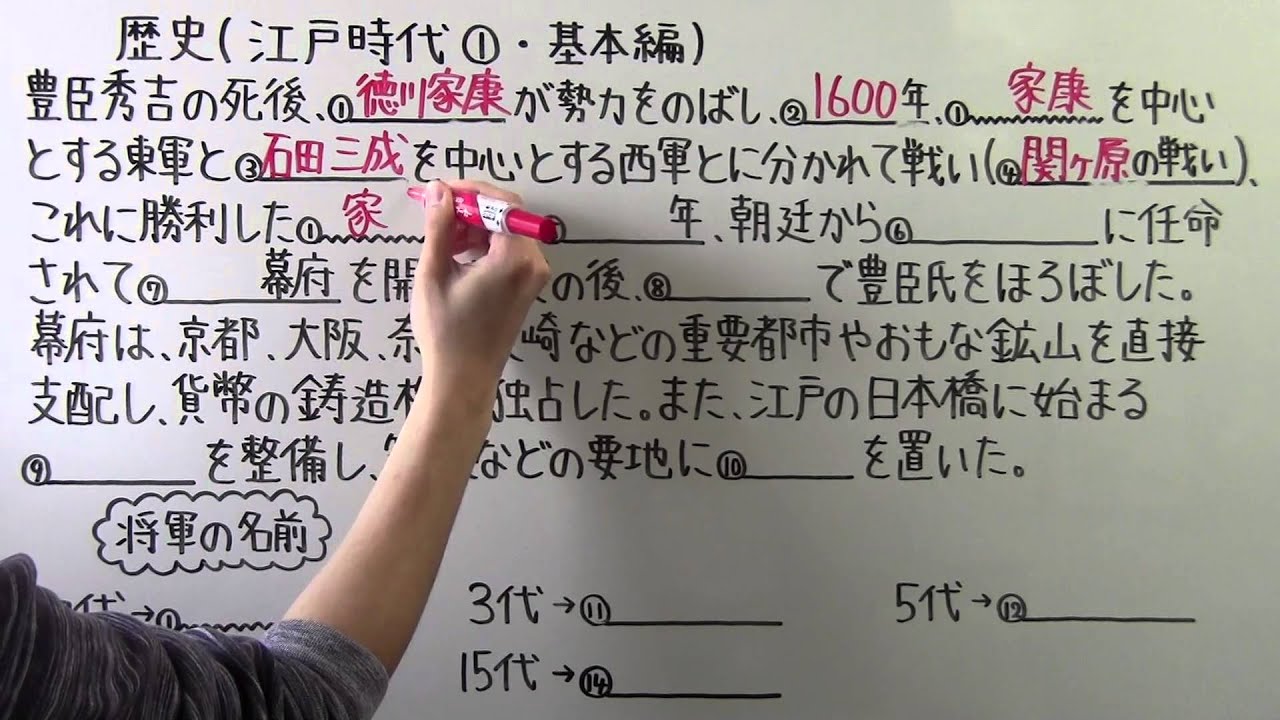 歴史(江戸時代①・基本編)
豊臣秀吉の死後、①徳川家康が勢力をのばし、②1600年、①家康を中心
とする東軍と③石田三成を中心とする西軍とに分かれて戦い(④関ヶ原の戦い)、
これに勝利した①家 年、朝廷から⑥に任命
されて⑦ 幕府を開 の後、⑧ で豊臣氏をほろぼした。
幕府は、京都、大阪、奈 崎などの重要都市やおもな鉱山を直接
支配し、貨幣の鋳造 独占した。また、江戸の日本橋に始まる
⑨ を整備し、 などの要地に⑩ を置いた。
将軍の名前
代→① 3代→⑪ 5代→⑫
15代→⑭